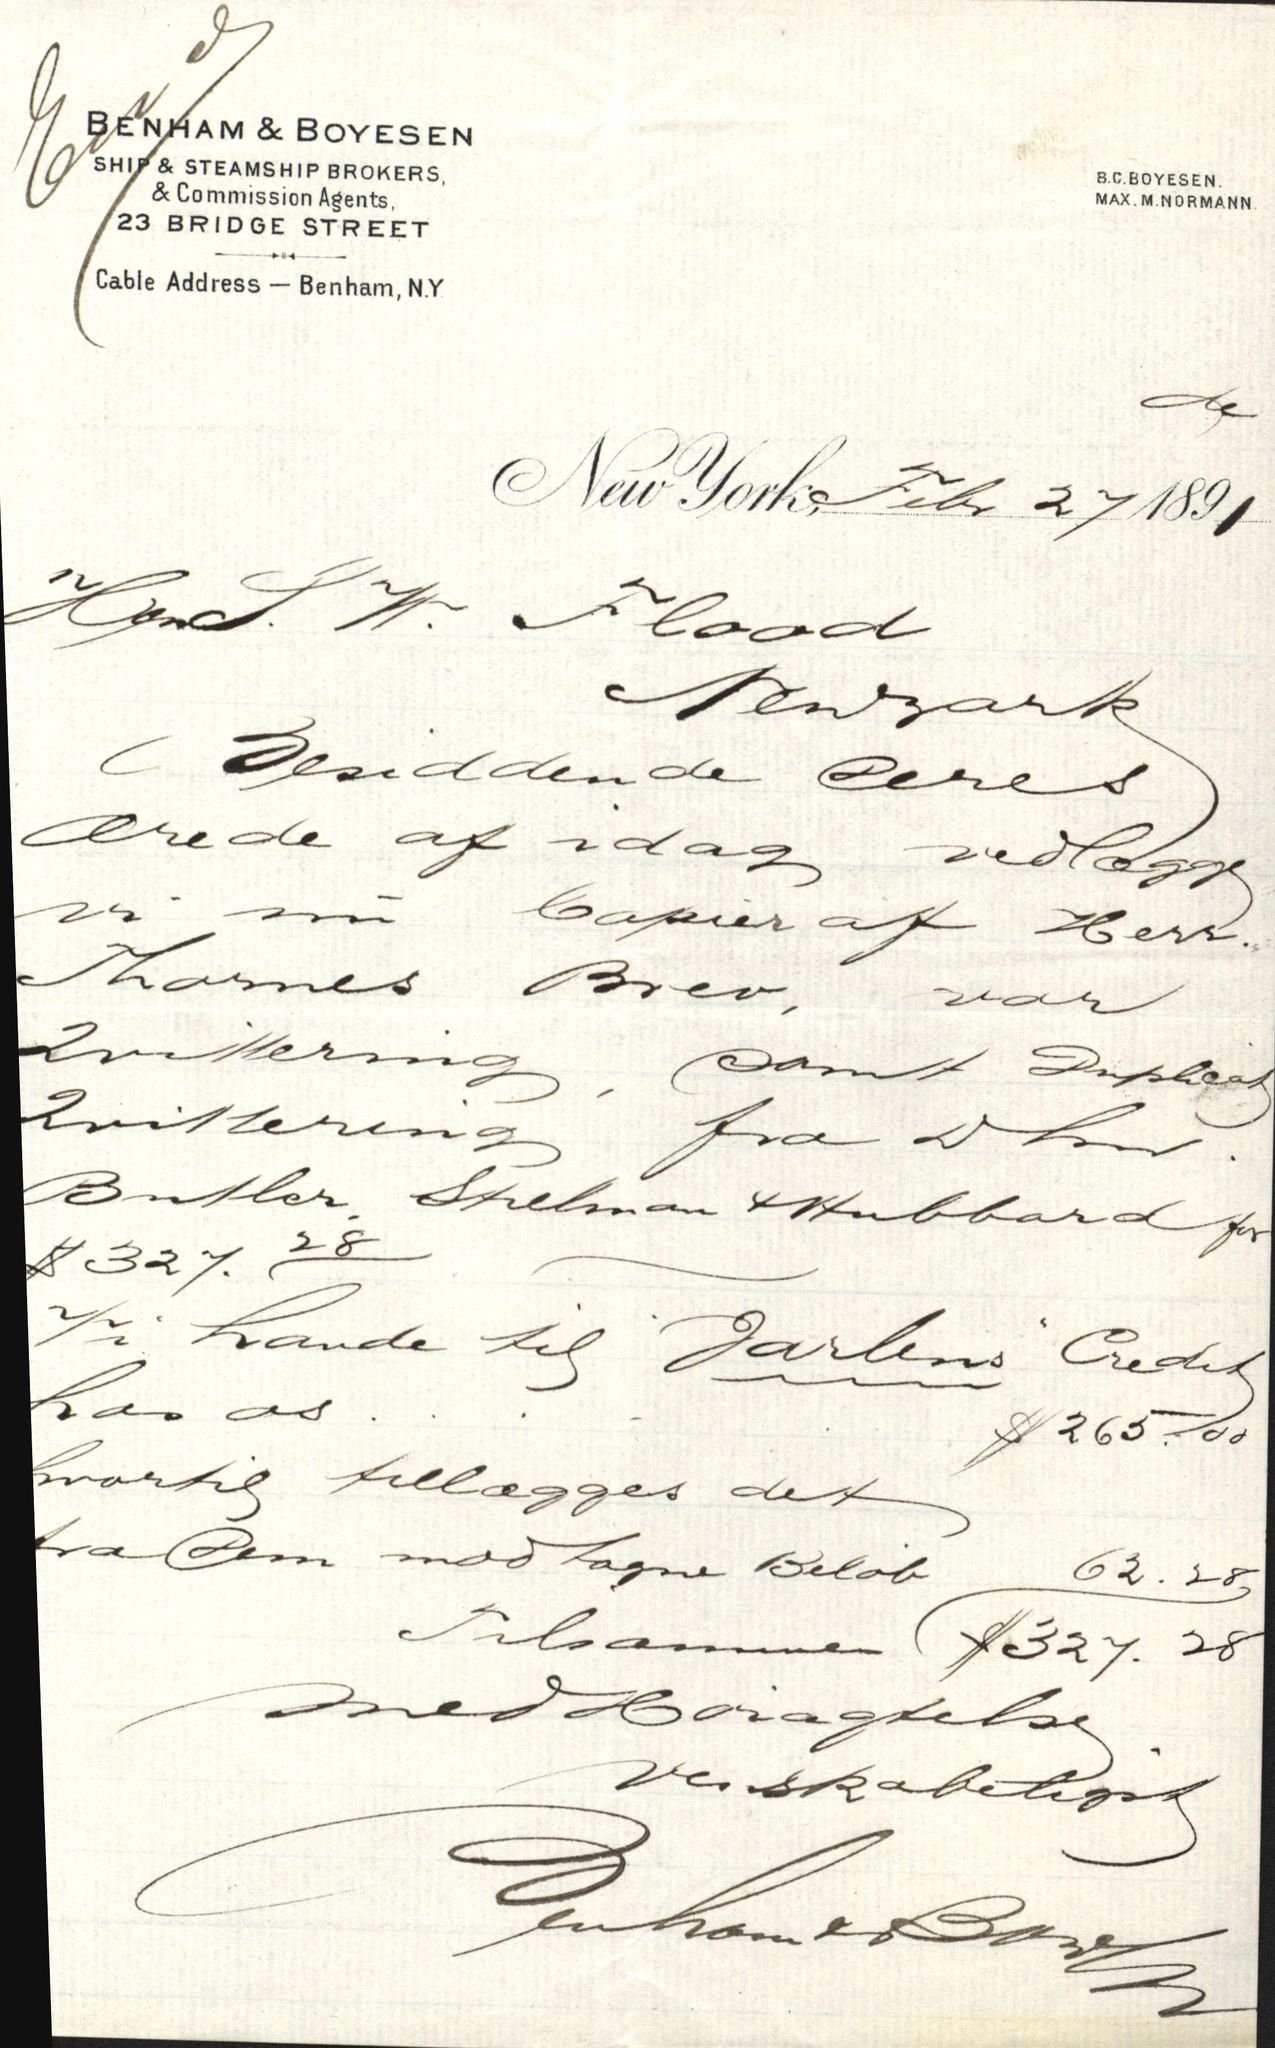 End
BENHAM & BOYESEN
SHIP & STEAMSHIP BROKERS,
& Commission Agents,
23 BRIDGE STREET
Cable Address — Benham, N.Y.
B.C. BOYESEN.
MAX. M. NORMANN.
New York, Febr 27 1891
S. W. Flood
Newyark
Besiddende Deres
Ærede af idag vedlægge
vi nu Copier af Herr.
Thornes Brev, vor
Qvittering, samt Duplicat
Qvittering fra
Butler, Stillman & Hubbard for
$ 327.28
Vi havde til "Jarlens" Credit
hos os . . . . $ 265.00
hvortil tillægges det
fra Dem modtagne Beløb 62.28
Tilsammen $327.28
med Høiagtelse
venskabeligst
Benham & Boyesen